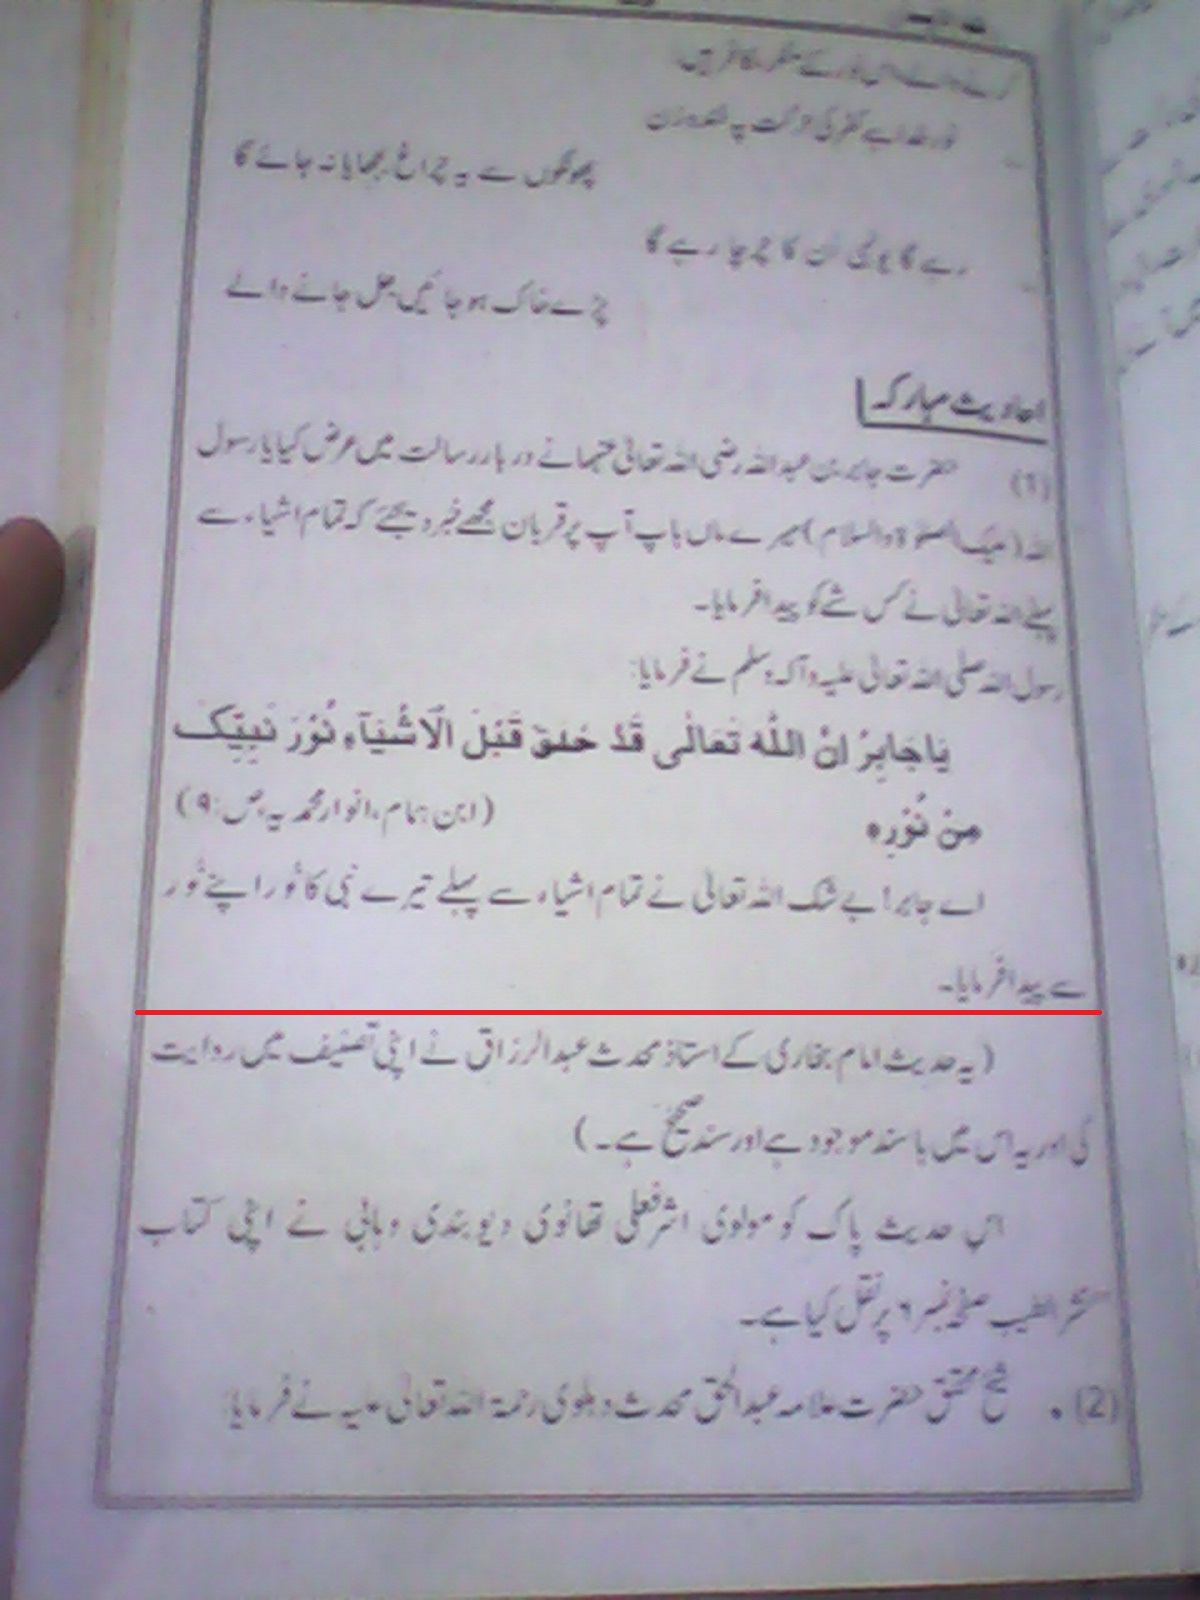 نور خدا ہے کفر کی حرکت پہ خندہ زن
پھونکوں سے یہ چراغ بجھایا نہ جائے گا
رہے گا یونہی ان کا چرچا رہے گا
پڑے خاک ہو جائیں جل جانے والے
احادیث مبارکہ
(1) حضرت جابر بن عبد اللہ رضی اللہ تعالیٰ عنہما نے دربار رسالت میں عرض کیا یا رسول
اللہ (علیک الصلوٰۃ والسلام) میرے ماں باپ آپ پر قربان مجھے خبر دیجئے کہ تمام اشیاء سے
پہلے اللہ تعالیٰ نے کس شے کو پیدا فرمایا۔
رسول اللہ صلی اللہ تعالیٰ علیہ وآلہ وسلم نے فرمایا:
يَاجَابِرُ اِنَّ اللّٰهَ تَعَالٰى قَدْ خَلَقَ قَبْلَ الْاَشْيَآءِ نُوْرَ نَبِيِّكَ
مِنْ نُوْرِهٖ (ابن ہمام، انوار محمدیہ ص:۹)
اے جابر! بے شک اللہ تعالیٰ نے تمام اشیاء سے پہلے تیرے نبی کا نُور اپنے نُور
سے پیدا فرمایا۔
(یہ حدیث امام بخاری کے استاذ محدث عبد الرزاق نے اپنی تصنیف میں روایت
کی اور یہ اس میں با سند موجود ہے اور سند صحیح ہے۔)
اس حدیث پاک کو مولوی اشرفعلی تھانوی دیوبندی وہابی نے اپنی کتاب
نشر الطیب صفحہ نمبر ۶ پر نقل کیا ہے۔
(2)۔ شیخ محقق حضرت علامہ عبد الحق محدث دہلوی رحمۃ اللہ تعالیٰ علیہ نے فرمایا: